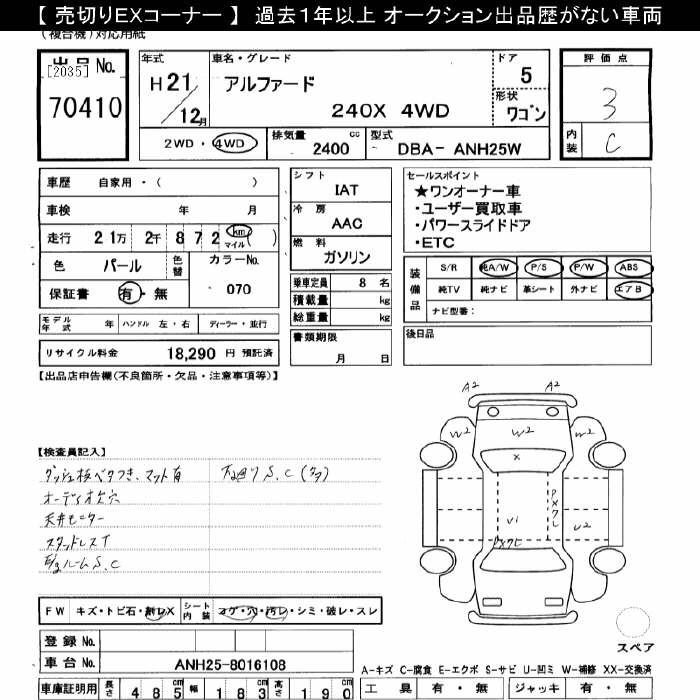 【 売切りEXコーナー 】 過去1年以上 オークション出品歴がない車両
(複合機)対応用紙
出品 No.
[2035]
70410
年式
H21
12月
車名・グレード
アルファード
240X 4WD
ドア
5
形状
ワゴン
2WD・4WD
排気量 cc
2400
型式
DBA- ANH25W
評価点
3
内装
C
車歴 自家用・( )
車検 年 月
走行 21万 2千 872 km マイル ( )
色 パール 色替 カラーNo.
保証書 有・無 070
モデル年式 年 ハンドル 左・右 ディーラー・並行
リサイクル料金 18,290 円 預託済
シフト
IAT
冷房
AAC
燃料
ガソリン
乗車定員 8 名
積載量 kg
総重量 kg
書類期限
月 日
セールスポイント
★ワンオーナー車
・ユーザー買取車
・パワースライドドア
・ETC
装備品
S/R 純A/W P/S P/W ABS
純TV 純ナビ 革シート 外ナビ エアB
ナビ型番:
後日品
【出品店申告欄(不良箇所・欠品・注意事項等)】
【検査員記入】
オーディオ欠 穴
天井モニター
スタッドレスT
A2 A2
W2 W2 W2
X
U2
FW キズ・トビ石・割レX シート内装 コゲ・穴・汚レ・シミ・破レ・スレ
登録 No.
車台 No. ANH25-8016108
車庫証明用 長さ 485 cm 幅 183 cm 高さ 190 cm
スペア
A-キズ C-腐食 E-エクボ S-サビ U-凹ミ W-補修 XX-交換済
工具 有・無 ジャッキ 有・無